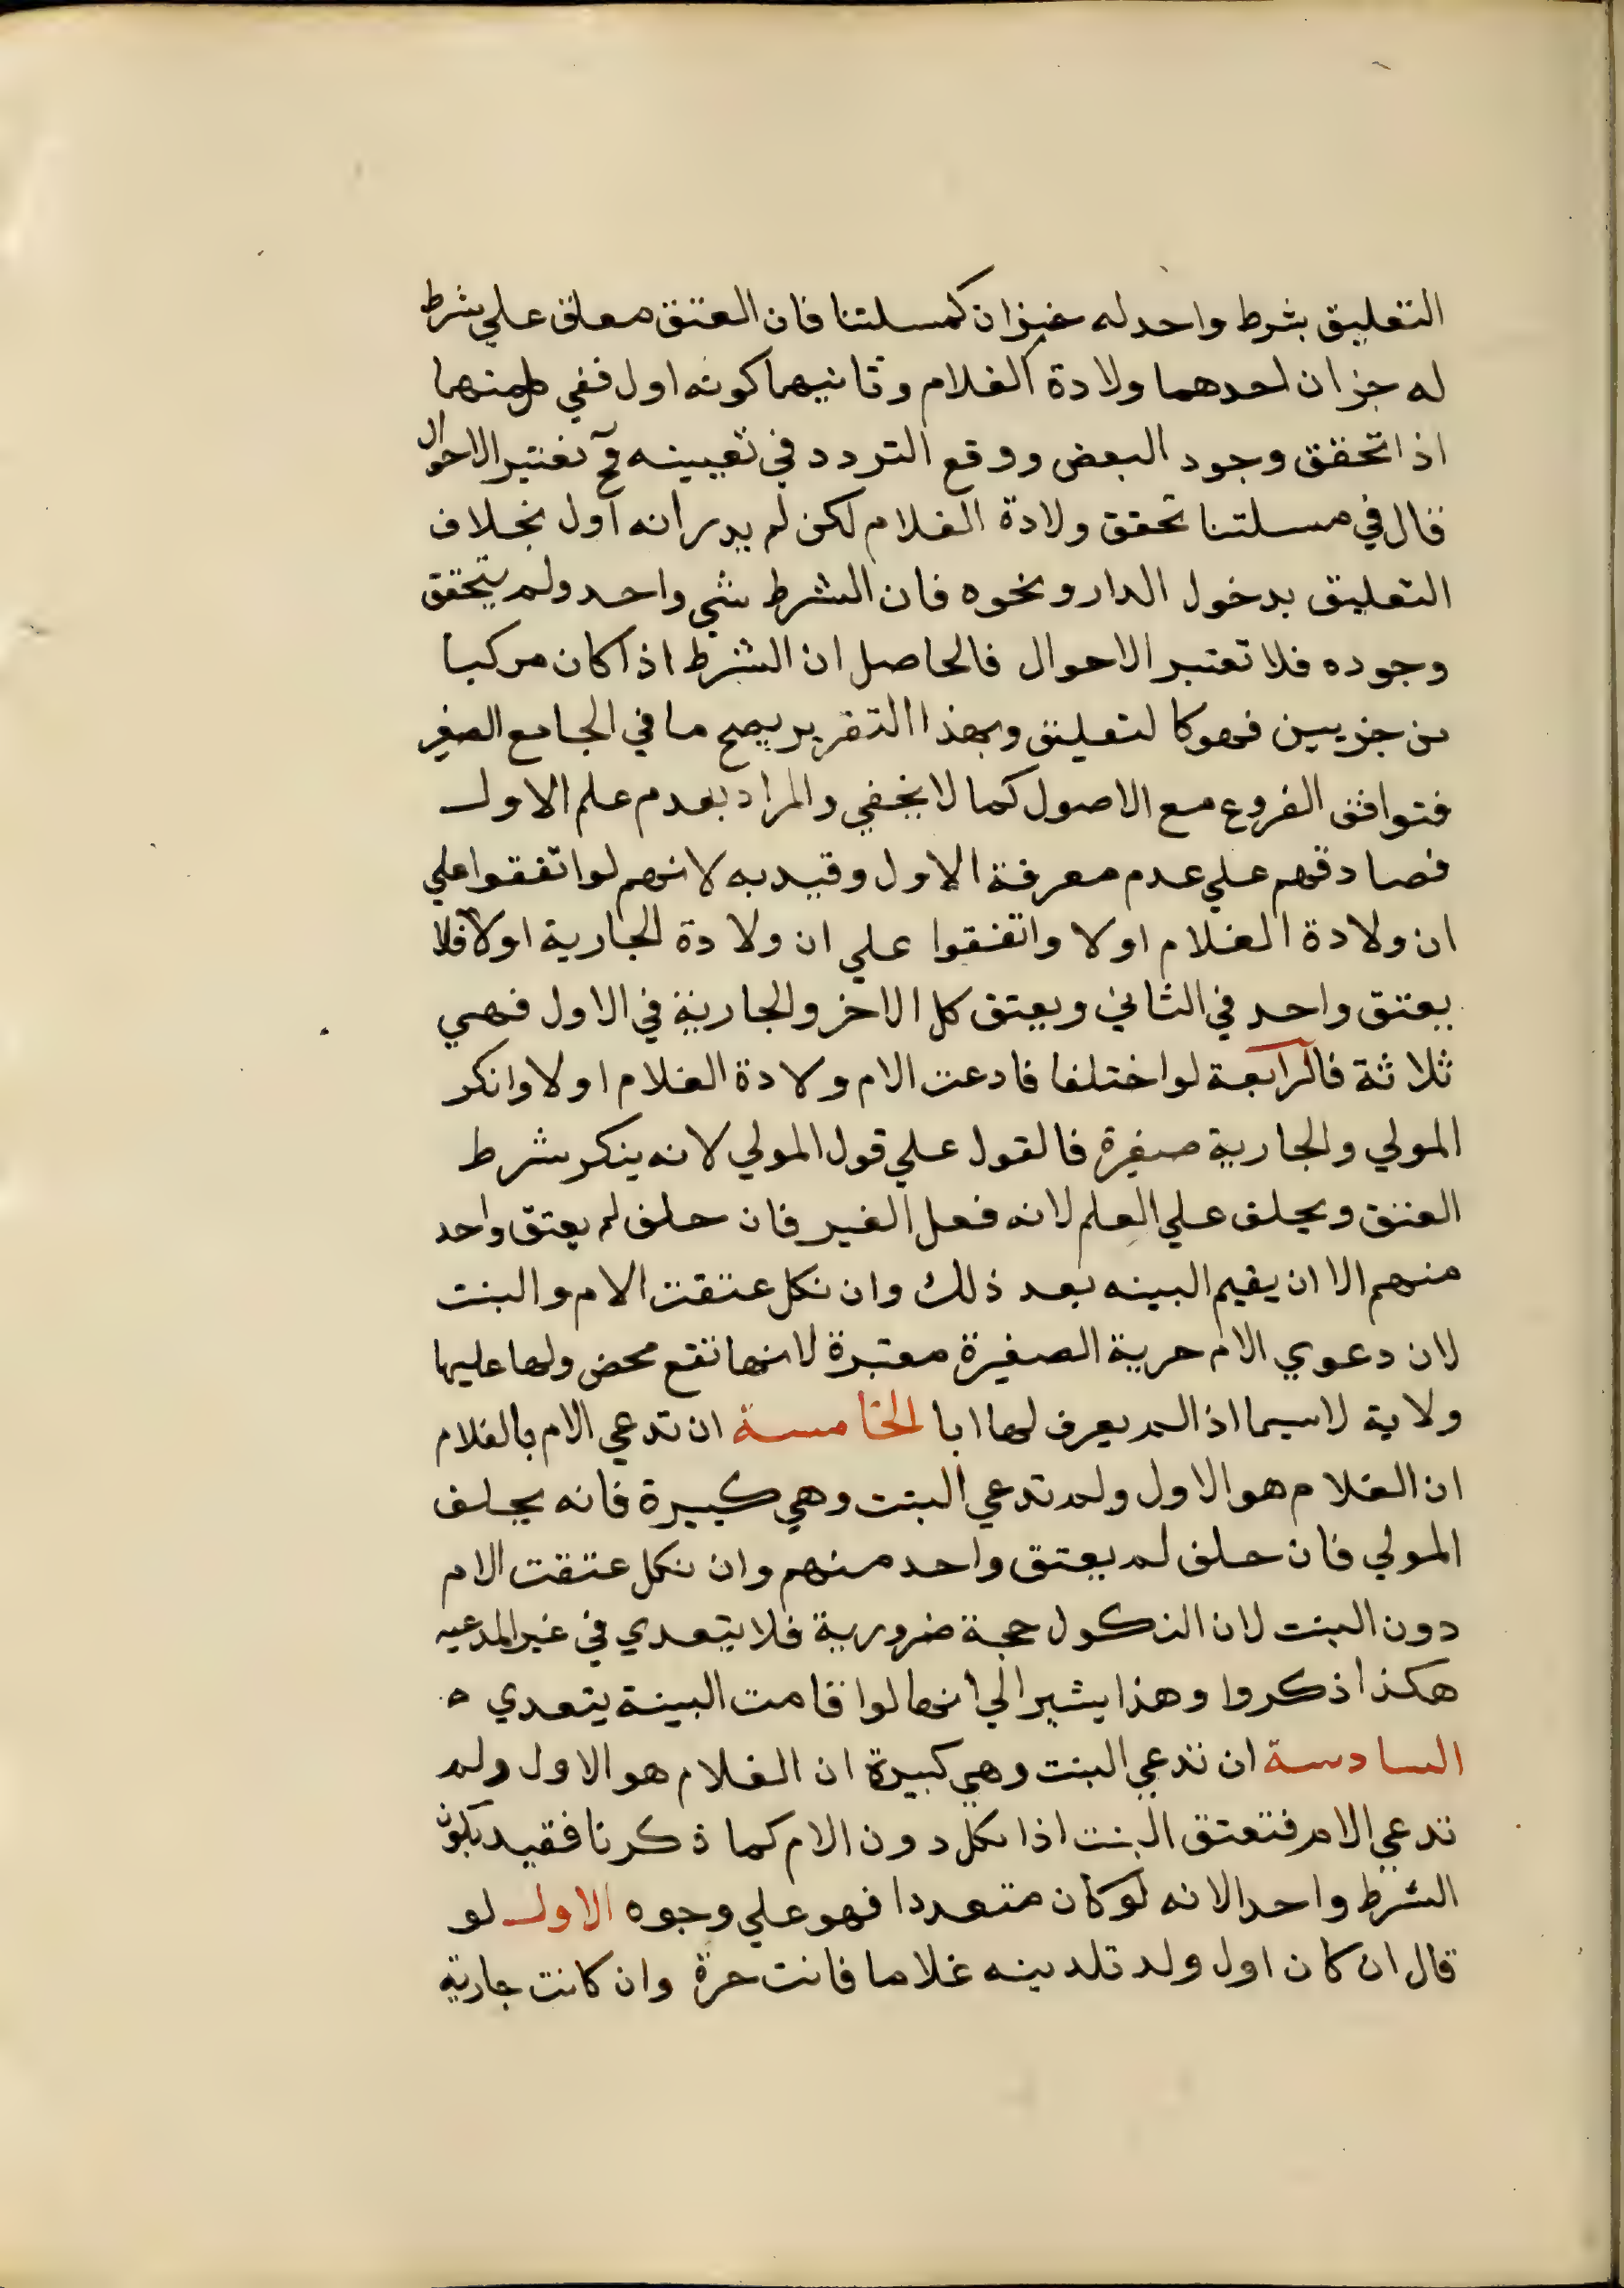 التعليق بشرط واحد له جزان كمسلتنا فان العتق معلق علي شرط
له جزان احدهما ولادة الغلام وثانيهما كونه اول ففي كل منهما
اذا تحقق وجود البعض ووقع التردد في تعيينه فح تعتبر الاحوال
قال في مسلتنا تحقق ولادة الغلام لكن لم يدر انه اول بخلاف
التعليق بدخول الدار ونحوه فان الشرط شي واحد ولم يتحقق
وجوده فلا تعتبر الاحوال فالحاصل ان الشرط اذا كان مركبا
من جزيين فهو كالتعليق وبهذا التقرير يصح ما في الجامع الصغير
فتوافق الفروع مع الاصول كما لا يخفي والمراد بعدم علم الاول
فصادقهم علي عدم معرفة الاول وقيد به لانهم لو اتفقوا علي
ان ولادة الغلام اولا واتفقوا علي ان ولادة الجارية اولا فلا
يعتق واحد في الثاني ويعتق كل الاخر والجارية في الاول فهي
ثلاثة فالرابعة لو اختلفا فادعت الام ولادة الغلام اولا وانكر
المولي والجارية صغيرة فالقول علي قول المولي لانه ينكر شرط
العتق ويحلف علي العلم لانه فعل الغير فان حلف لم يعتق واحد
منهم الا ان يقيم البينه بعد ذلك وان نكل عتقت الام والبنت
لان دعوي الام حرية الصغيرة معتبرة لانها نفع محض ولها عليها
ولاية لاسيما اذا لم يعرف لها ابا الخامسة ان تدعي الام بالغلام
ان الغلام هو الاول ولم تدعي البنت وهي كبيرة فانه يحلف
المولي فان حلف لم يعتق واحد منهم وان نكل عتقت الام
دون البنت لان النكول حجة ضرورية فلا يتعدي في غير المدعيه
هكذا ذكروا وهذا يشير الي انها لو اقامت البينة يتعدي ه
السادسة ان تدعي البنت وهي كبيرة ان الغلام هو الاول ولم
تدعي الام فتعتق البنت اذا نكل دون الام كما ذكرنا فقيد بكون
الشرط واحدا لانه لو كان متعددا فهو علي وجوه الاول لو
قال ان كان اول ولد تلدينه غلاما فانت حرة وان كانت جارية